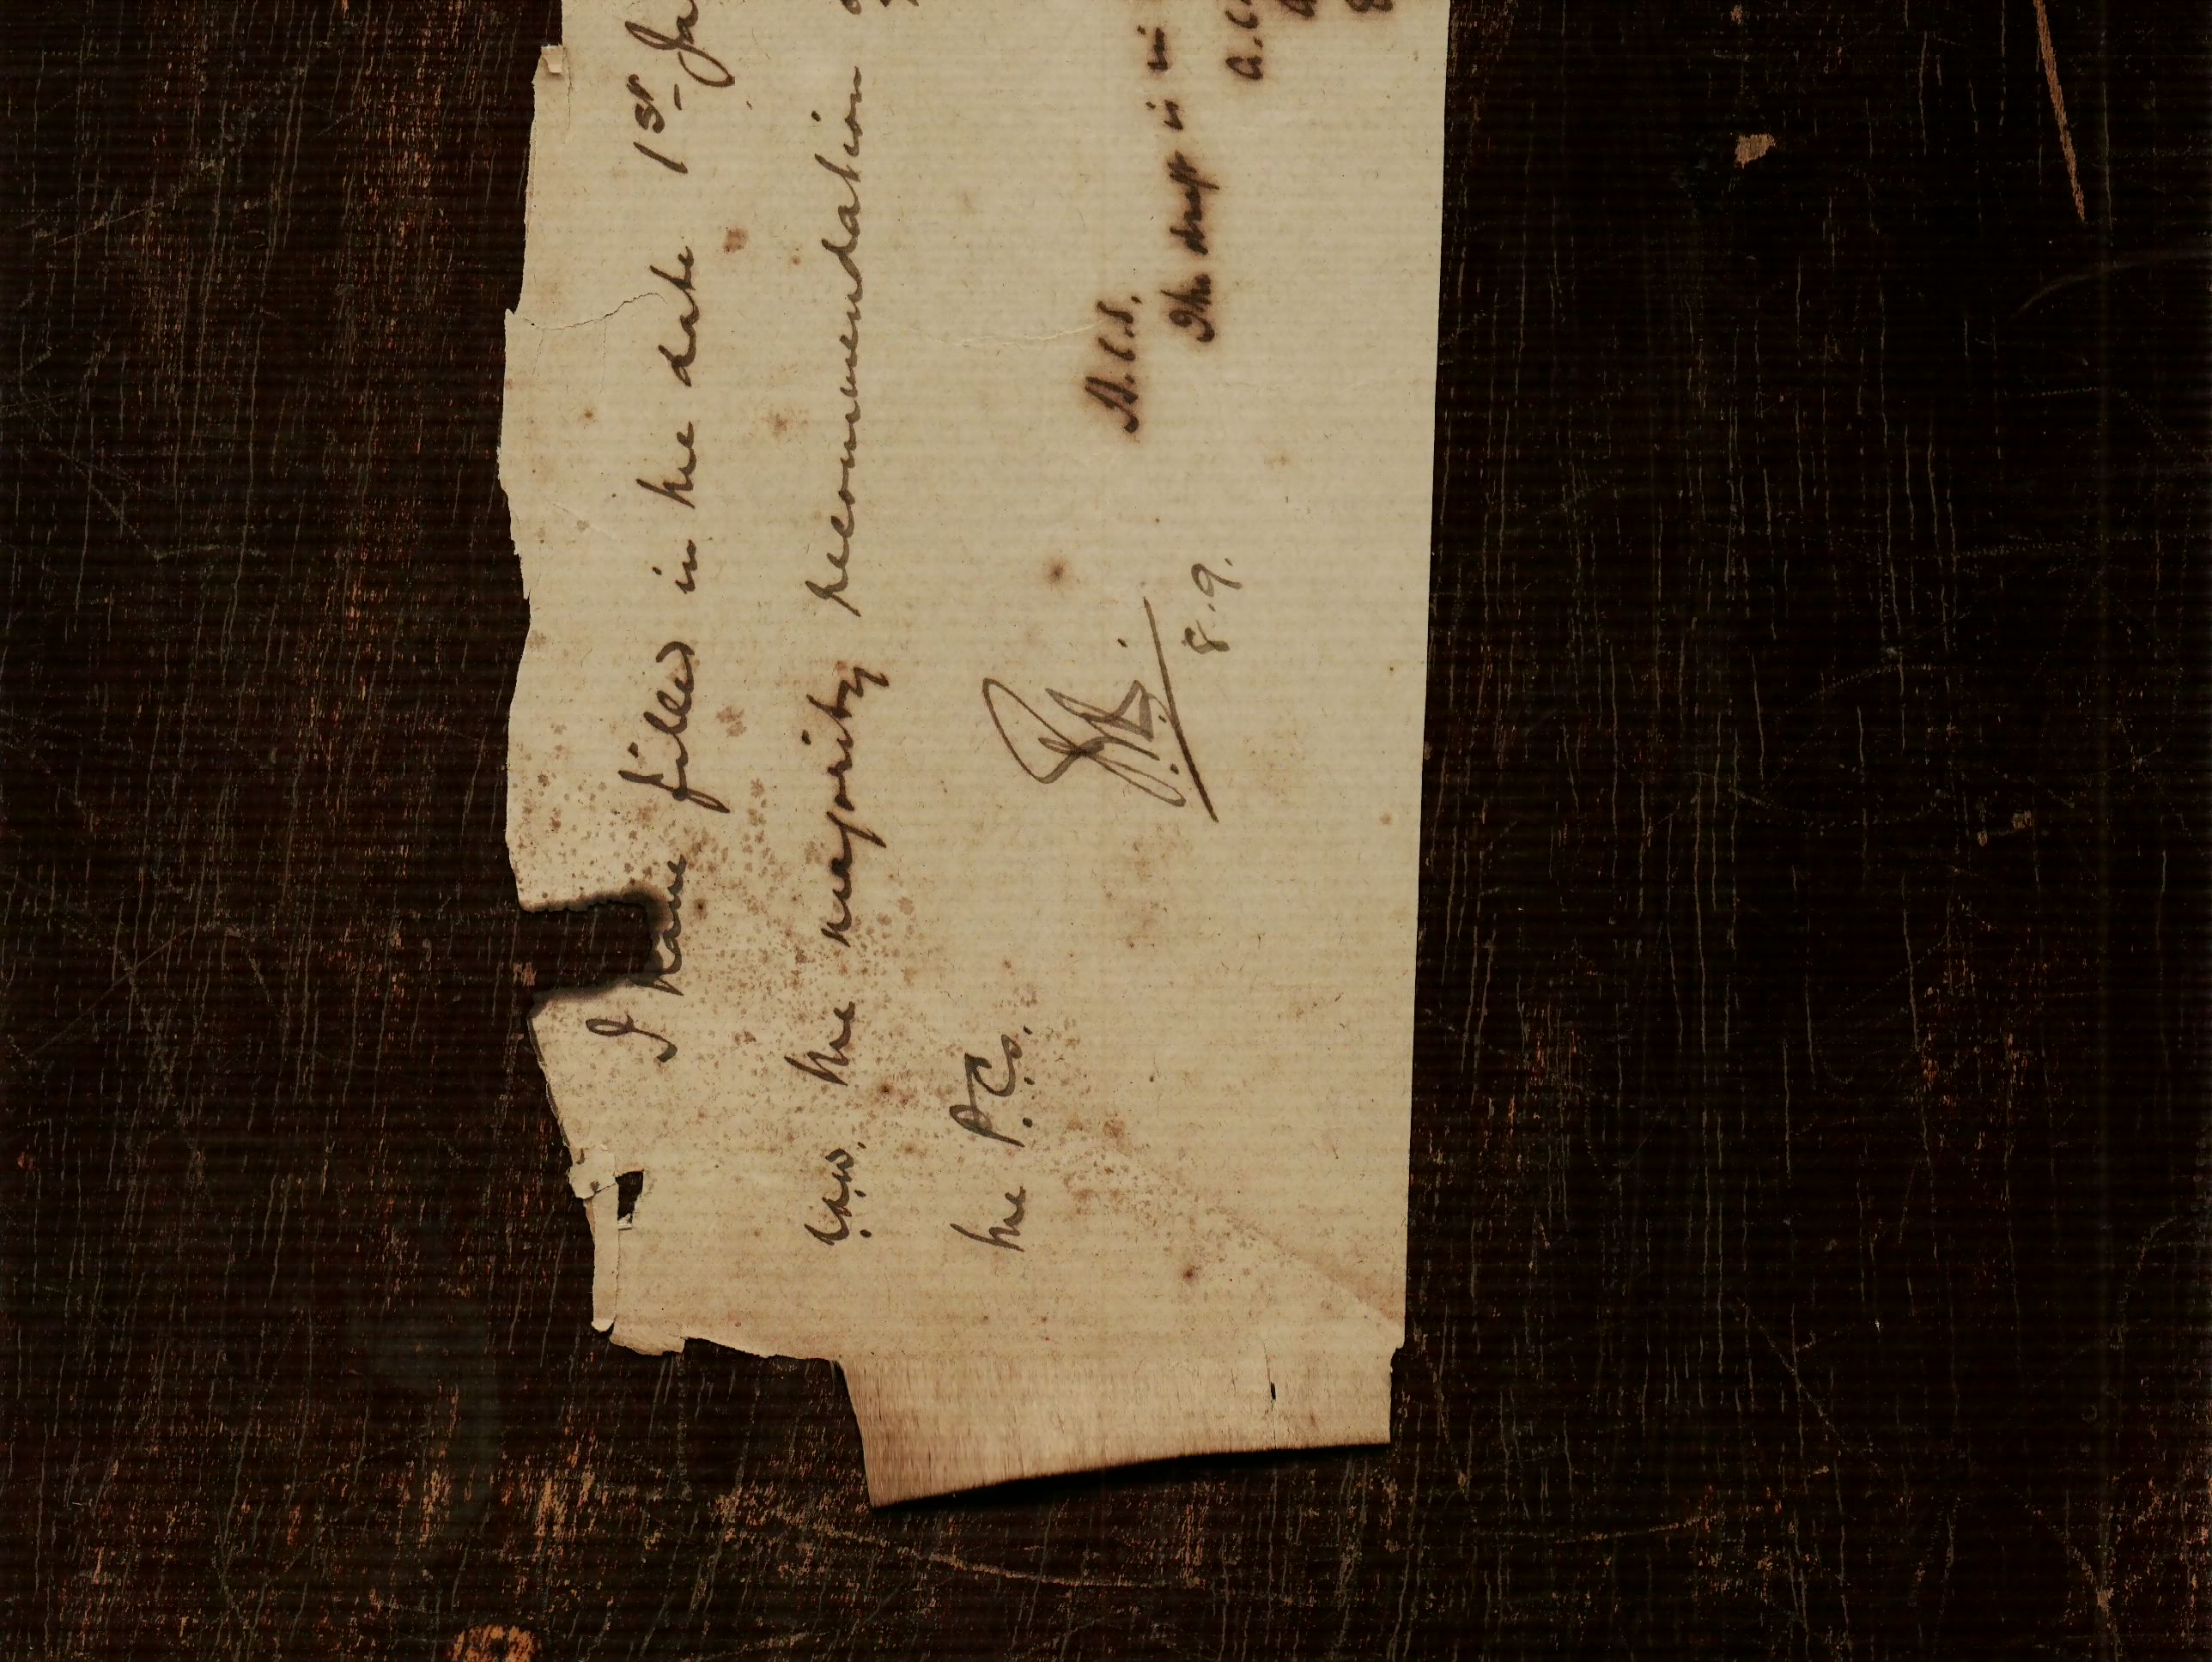 I have filled in the date 1st Ja
the majority recommendation
the P.Cs.
8.9.
The draft is in